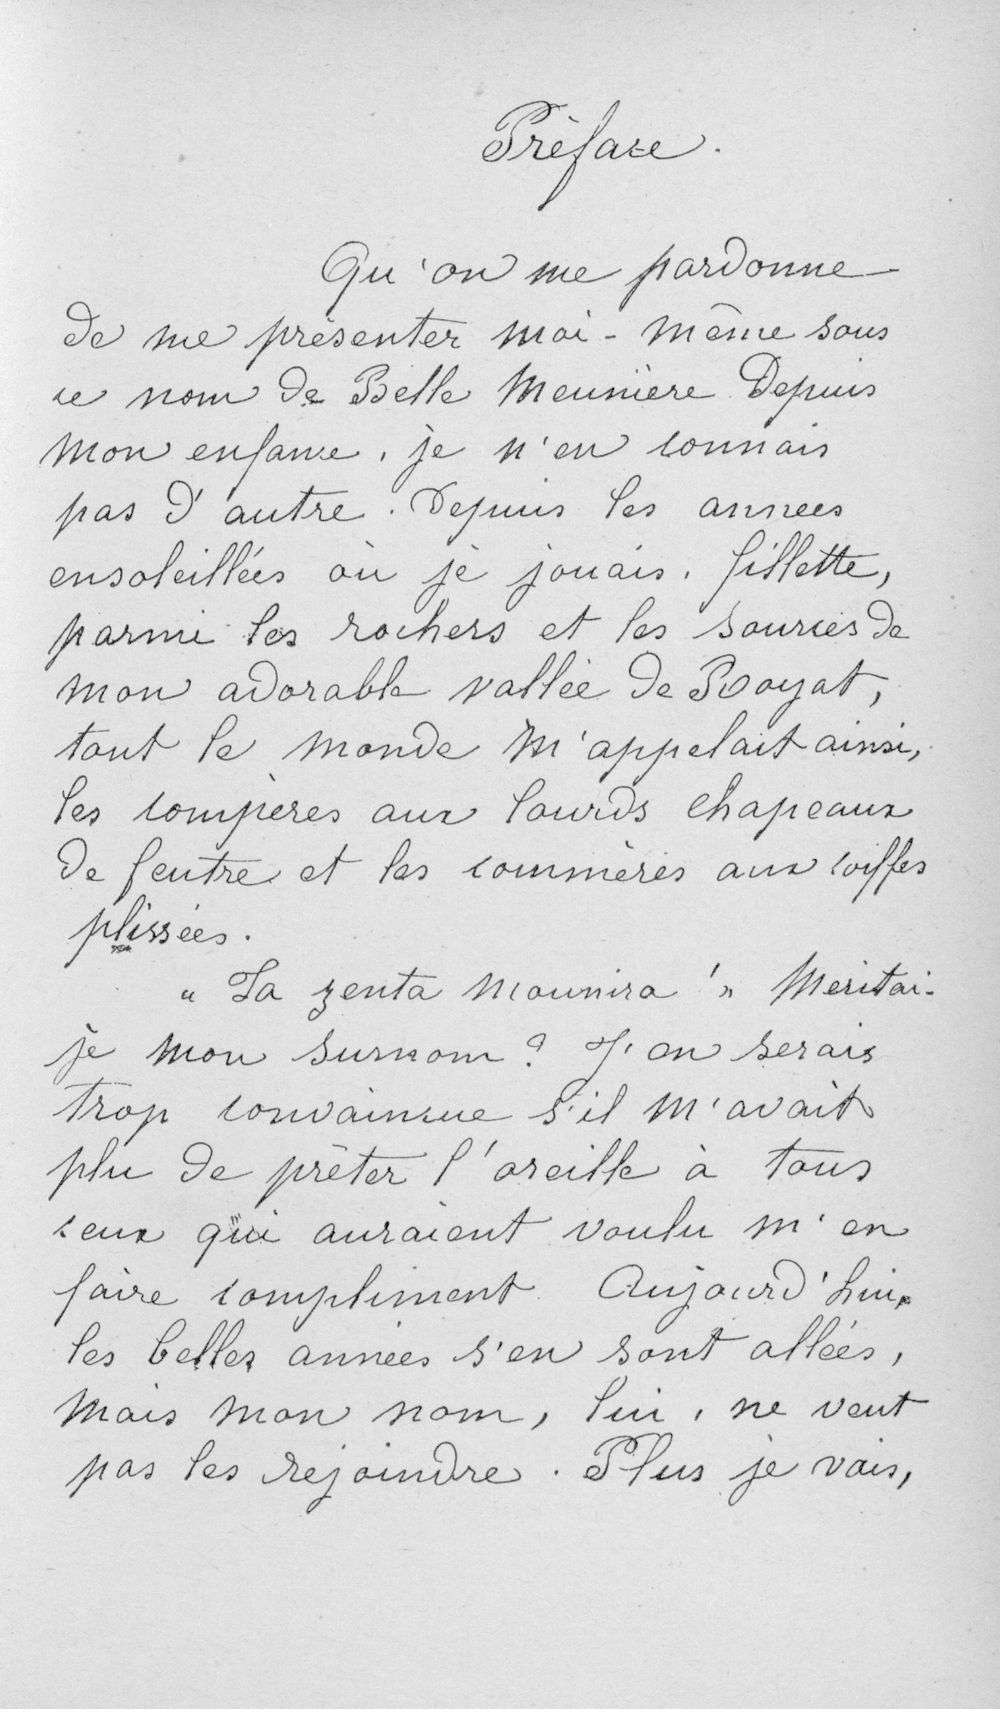 Préface.
Qu'on me pardonne
de me présenter moi-même sous
ce nom de Belle Meunière. Depuis
mon enfance, je n'en connais
pas d'autre. Depuis les années
ensoleillées où je jouais, fillette,
parmi les rochers et les sources de
mon adorable vallée de Royat,
tout le monde m'appelait ainsi,
les compères aux lourds chapeaux
de feutre et les commères aux coiffes
plissées.
"La zenta mounira !" Méritai-
je mon surnom ? J'en serais
trop convaincue s'il m'avait
plu de prêter l'oreille à tous
ceux qui auraient voulu m'en
faire compliment. Aujourd'hui,
les belles années s'en sont allées,
mais mon nom, lui, ne veut
pas les rejoindre. Plus je vais,